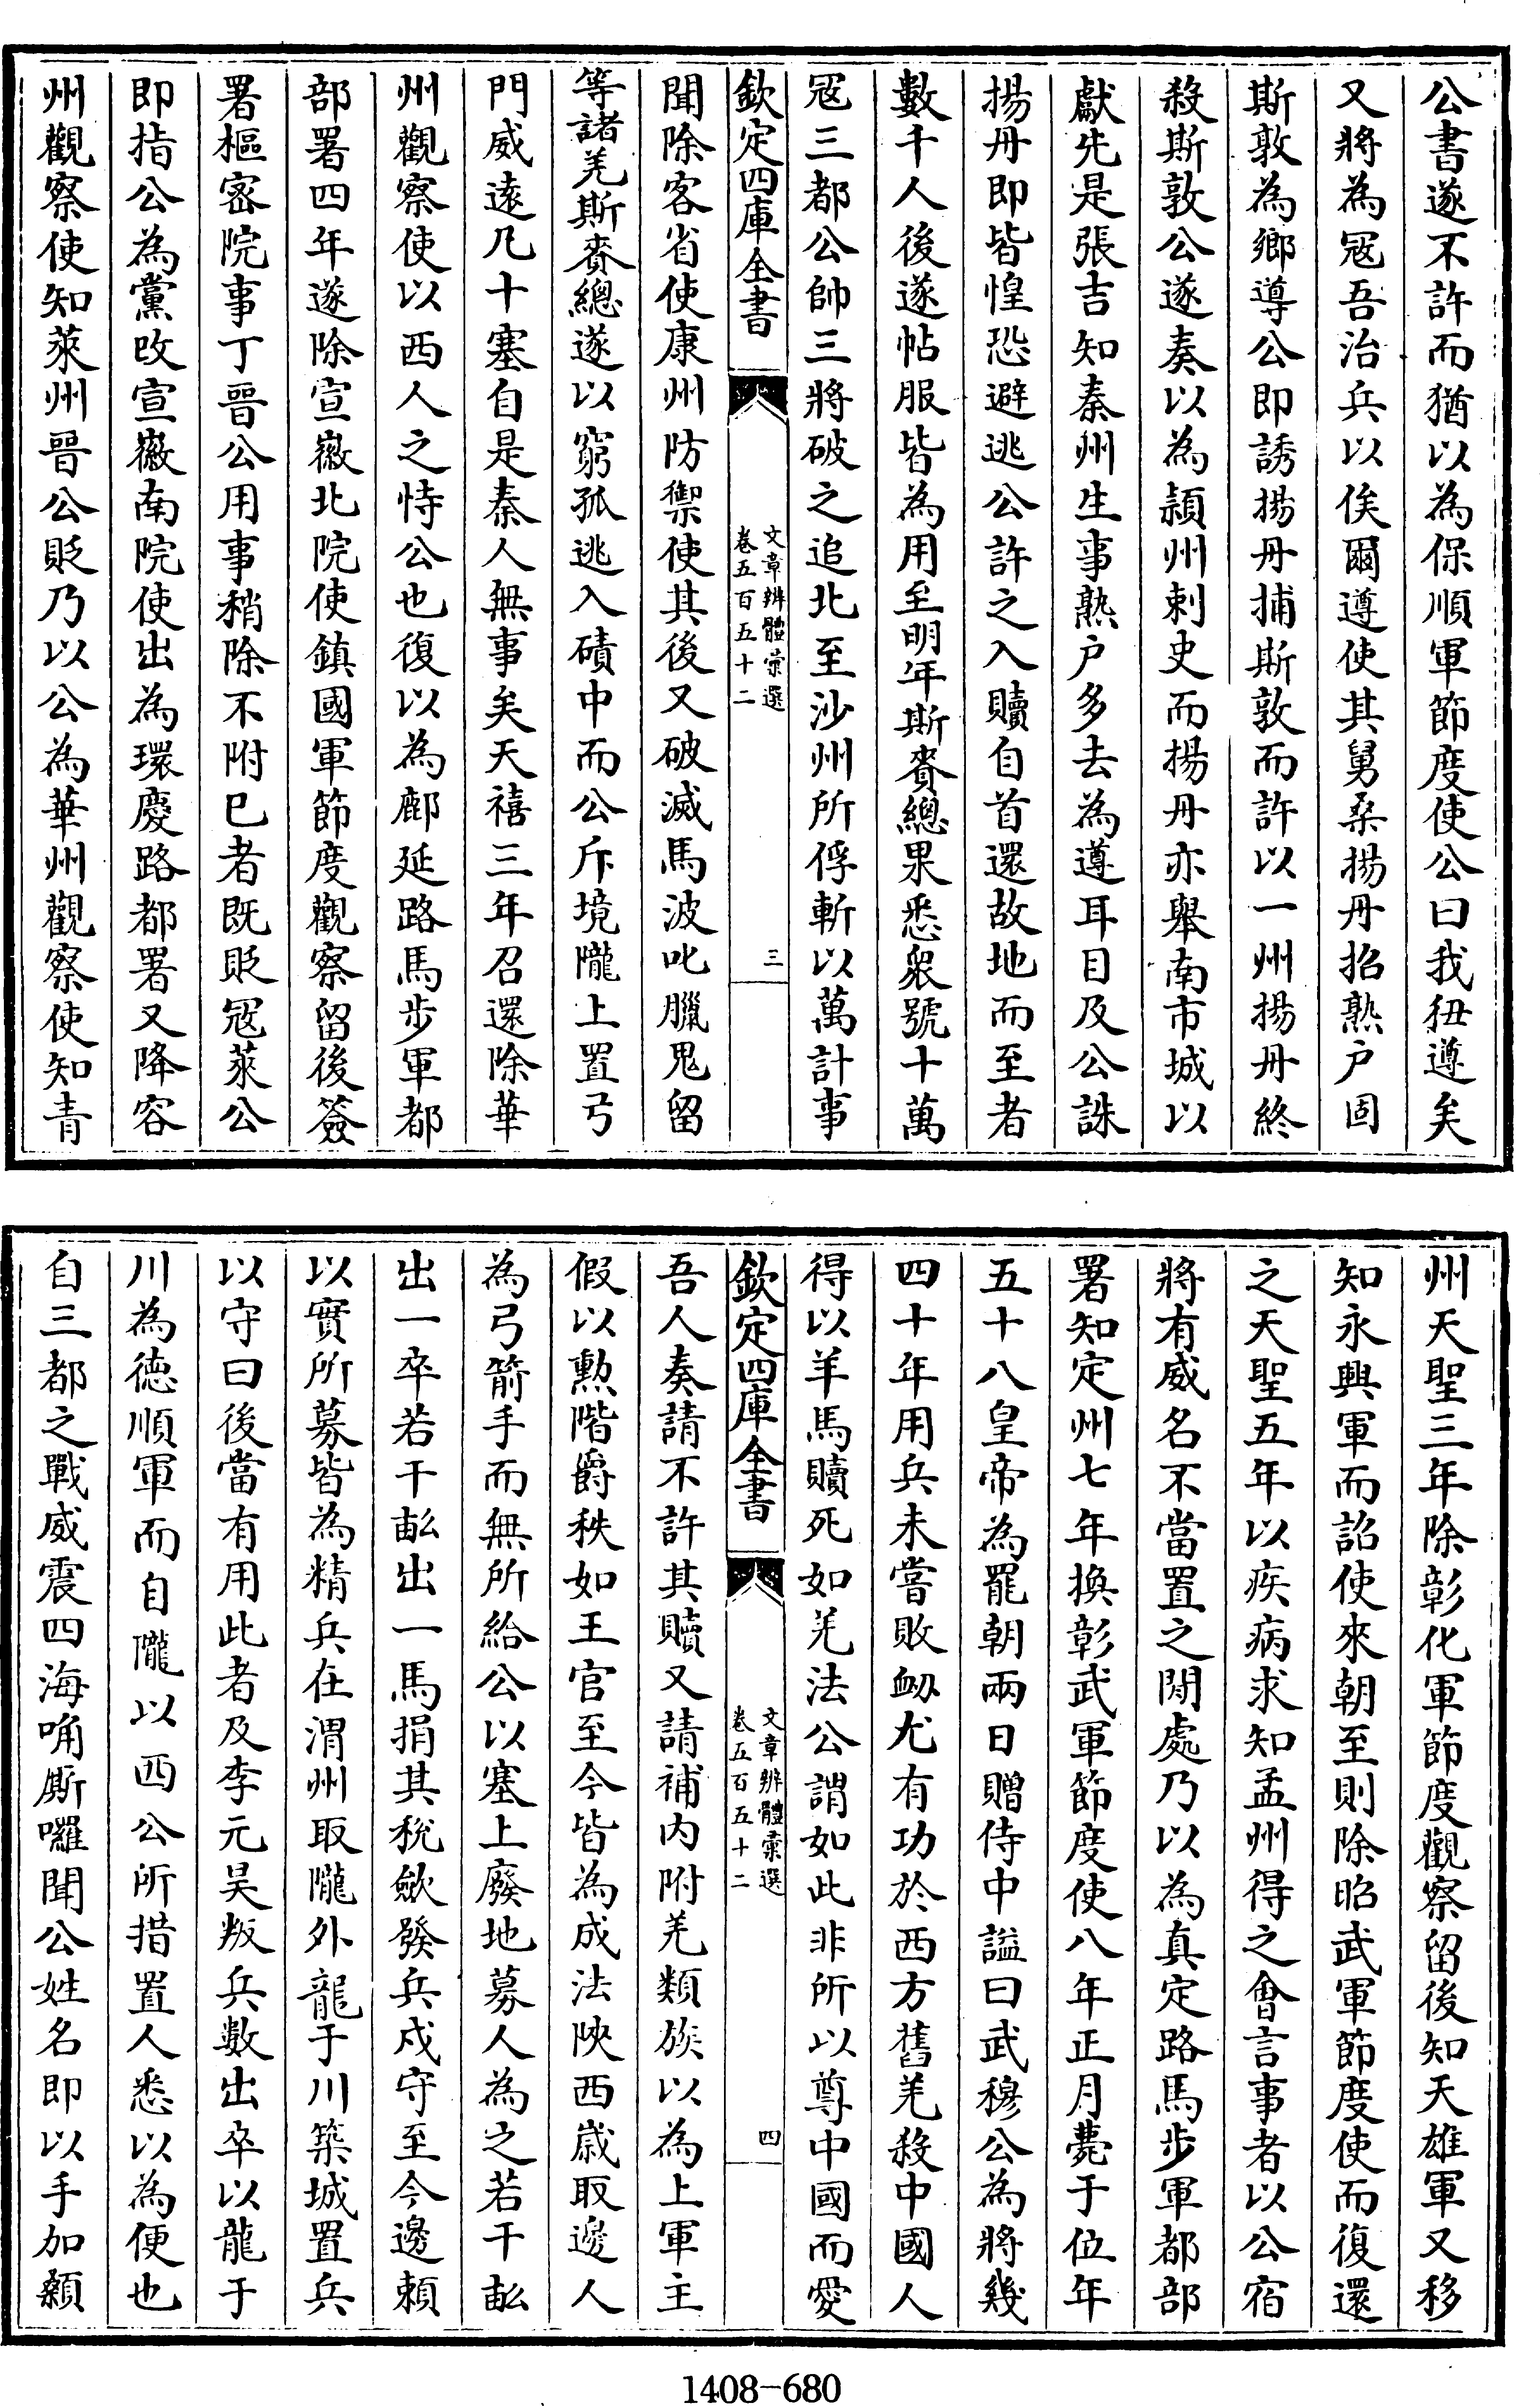 公書遂不許而猶以為保順軍節度使公曰我狃遵矣
又將為冦吾治兵以俟爾遵使其舅桒揚丹招熟户固
斯敦為鄉導公即誘揚丹捕斯敦而許以一州揚丹終
殺斯敦公遂奏以為頴州刺史而揚丹亦舉南市城以
獻先是張吉知秦州生事熟户多去為遵耳目及公誅
揚丹即皆惶恐避逃公許之入贖自首還故地而至者
數千人後遂帖服皆為用至明年斯賚總果悉衆號十萬
冦三都公帥三將破之追北至沙州所俘斬以萬計事
欽定四庫全書
文章辨體彚選
卷五百五十二
三
聞除客省使康州防禦使其後又破滅馬波叱臘鬼留
等諸羌斯賚總遂以窮孤逃入磧中而公斥境隴上置弓
門威逺凡十塞自是秦人無事矣天禧三年召還除華
州觀察使以西人之恃公也復以為鄜延路馬步軍都
部署四年遂除宣徽北院使鎮國軍節度觀察留後簽
署樞宻院事丁晉公用事稍除不附已者既貶冦萊公
即指公為黨改宣徽南院使出為環慶路都署又降容
州觀察使知萊州晉公貶乃以公為華州觀察使知青
州天聖三年除彰化軍節度觀察留後知天雄軍又移
知永興軍而詔使來朝至則除昭武軍節度使而復還
之天聖五年以疾病求知孟州得之會言事者以公宿
將有威名不當置之閒處乃以為真定路馬步軍都部
署知定州七年換彰武軍節度使八年正月薨于位年
五十八皇帝為罷朝兩日贈侍中諡曰武穆公為將幾
四十年用兵未嘗敗衂尤有功於西方舊羌殺中國人
得以羊馬贖死如羌法公謂如此非所以尊中國而愛
欽定四庫全書
文章辨體彚選
卷五百五十二
四
吾人奏請不許其贖又請補内附羌類族以為上軍主
假以勲階爵秩如王官至今皆為成法陜西嵗取邊人
為弓箭手而無所給公以塞上廢地募人為之若干畝
出一卒若干畝出一馬捐其稅斂發兵戍守至今邊頼
以實所募皆為精兵在渭州取隴外龍于川築城置兵
以守曰後當有用此者及李元昊叛兵數出卒以龍于
川為德順軍而自隴以西公所措置人悉以為便也
自三都之戰威震四海唃厮囉聞公姓名即以手加顙
1408-680